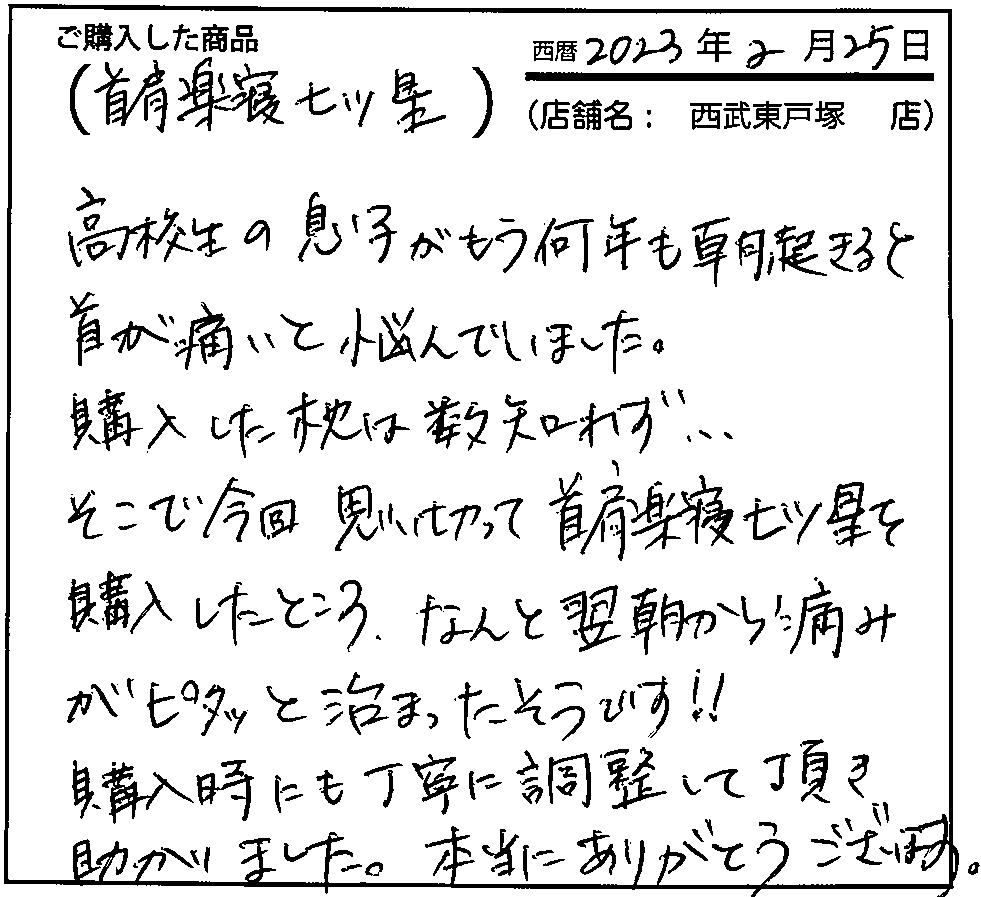 ご購入した商品
西暦 2023 年 2 月 25 日
(首肩楽寝七ツ星)
(店舗名: 西武東戸塚 店)
高校生の息子がもう何年も朝起きると
首が痛いと悩んでいました。
購入した枕は数知れず…
そこで今回思い切って首肩楽寝七ツ星を
購入したところ、なんと翌朝から痛み
がピタッと治まったそうです!!
購入時にも丁寧に調整して頂き
助かりました。本当にありがとうございます。